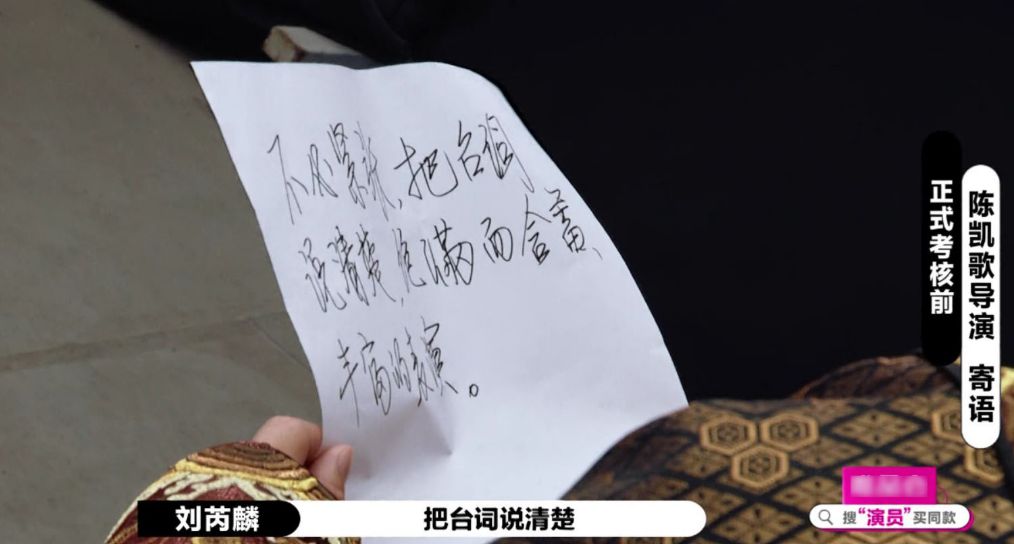 不必紧张,把台词
说清楚,饱满而含蓄、
丰富的表演。
正式考核前
陈凯歌导演 寄语
刘芮麟
把台词说清楚
搜“演员”买同款